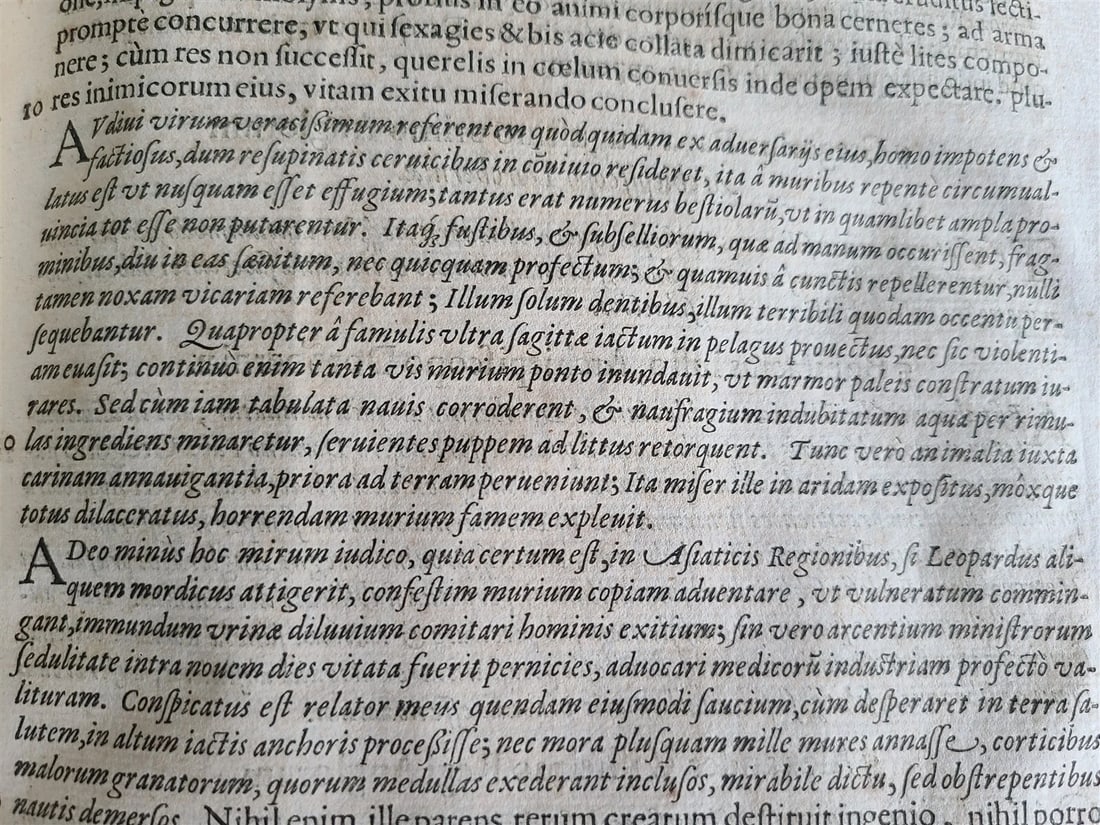 animi corporisque bona cerneres; ad arma
prompte concurrere, vt qui sexagies & bis acie collata dimicarit; iustè lites compo-
nere; cùm res non successit, querelis in cœlum conuersis inde opem expectare. plu-
10 res inimicorum eius, vitam exitu miserando conclusere.
AVdiui virum veracißimum referentem quòd quidam ex aduersarijs eius, homo impotens &
factiosus, dum resupinatis ceruicibus in cōuiuio resideret, ita â muribus repentè circumual-
latus est vt nusquam esset effugium; tantus erat numerus bestiolarū, vt in quamlibet ampla pro-
uincia tot esse non putarentur. Itaq́; fustibus, & subselliorum, quæ ad manum occurissent, frag-
minibus, diu in eas sæuitum, nec quicquam profectum; & quamuis â cunctis repellerentur, nulli
tamen noxam vicariam referebant; Illum solum dentibus, illum terribili quodam occentu per-
sequebantur. Quapropter â famulis vltra sagittæ iactum in pelagus prouectus, nec sic violenti-
am euasit; continuò enim tanta vis murium ponto inundauit, vt marmor paleis constratum iu-
rares. Sed cùm iam tabulata nauis corroderent, & naufragium indubitatum aqua per rimu-
las ingrediens minaretur, seruientes puppem ad littus retorquent. Tunc verò animalia iuxta
carinam annauigantia, priora ad terram perueniunt; Ita miser ille in aridam expositus, môxque
totus dilaceratus, horrendam murium famem expleuit.
ADeo minùs hoc mirum iudico, quia certum est, in Asiaticis Regionibus, si Leopardus ali-
quem mordicus attigerit, confestim murium copiam aduentare, vt vulneratum commin-
gant, immundum vrinæ diluuium comitari hominis exitium; sin vero arcentium ministrorum
sedulitate intra nouem dies vitata fuerit pernicies, aduocari medicorū industriam profectò va-
lituram. Conspicatus est relator meus quendam eiusmodi saucium, cùm desperaret in terra sa-
lutem, in altum iactis anchoris proceßisse; nec mora plusquam mille mures annasse, corticibus
malorum granatorum, quorum medullas exederant inclusos, mirabile dictu, sed obstrepentibus
nautis demersos. Nihil enim ille parens rerum creatum destituit ingenio, nihil porro